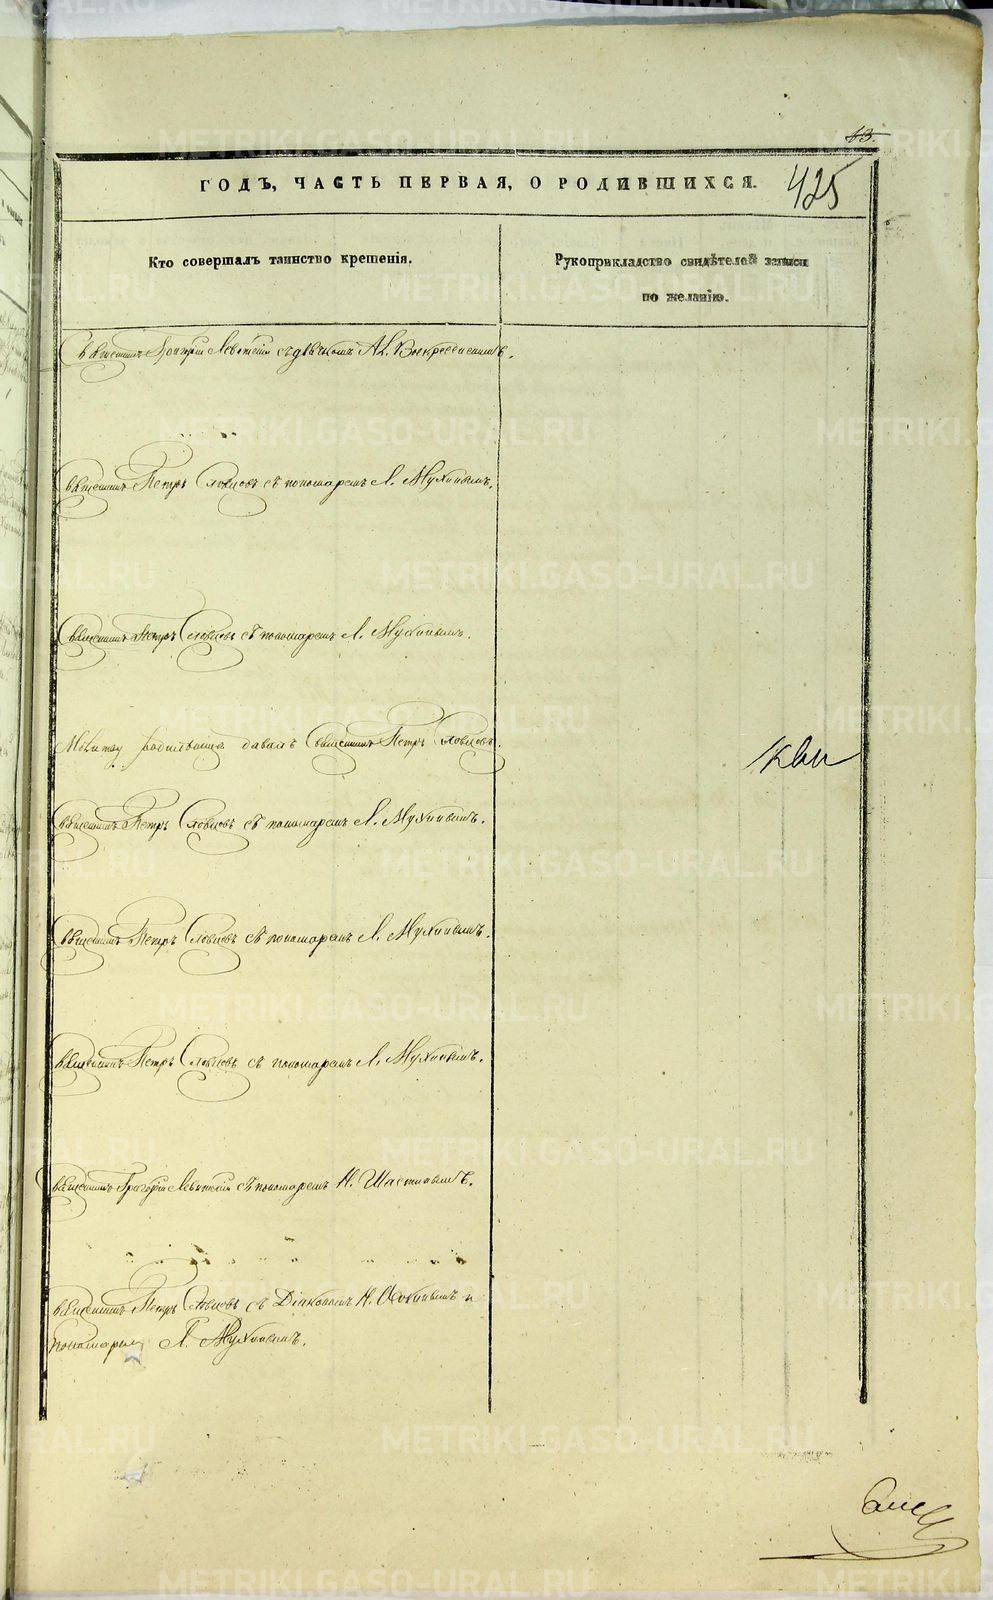 43.
425
ГОДЪ, ЧАСТЬ ПЕРВАЯ, О РОДИВШИХСЯ.
Кто совершалъ таинство крещенія.
Рукоприкладство свидѣтелей записи
по желанію.
Священникъ Григорій Левитскій съ дьячкомъ Ал. Воскресенскимъ.
Священникъ Петръ Словцовъ съ пономаремъ Л. Мухинымъ.
Священникъ Петръ Словцовъ съ пономаремъ Л. Мухинымъ.
Молитву родильницѣ давалъ Священникъ Петръ Словцовъ.
Священникъ Петръ Словцовъ съ пономаремъ Л. Мухинымъ.
Священникъ Петръ Словцовъ съ пономаремъ Л. Мухинымъ.
Священникъ Петръ Словцовъ съ пономаремъ Л. Мухинымъ.
Священникъ Григорій Левитскій съ пономаремъ Н.
Священникъ Петръ Словцовъ съ Діакономъ Н. и
пономаремъ Л. Мухинымъ.
METRIKI.GASO-URAL.RU